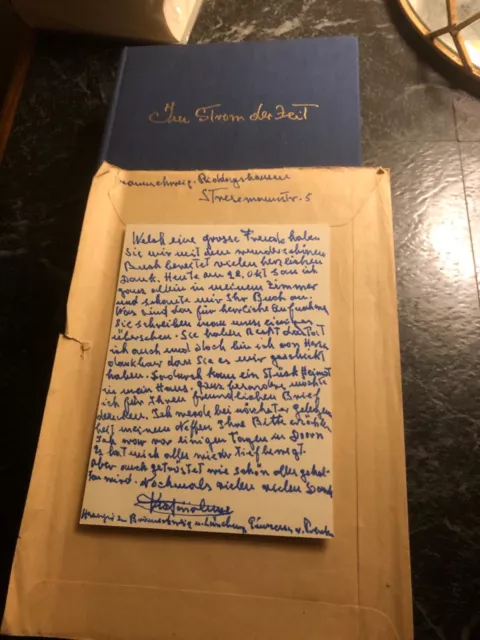 Im Strom der Zeit
Recklinghausen
Stresemannstr. 5
Welch eine grosse Freude haben
Sie mir mit dem wunderschönen
Buch bereitet vielen herzlichen
Dank. Heute am 22. Okt. sass ich
ganz allein in meinem Zimmer
und schaute mir Ihr Buch an.
Was sind das für herrliche Aufnahmen
Sie schreiben man muss einiges
übersehen. Sie haben Recht das tat
ich auch und doch bin ich von Herzen
dankbar dass Sie es mir geschickt
haben. Dadurch kam ein Stück Heimat
in mein Haus. Ganz besonders möchte
ich für Ihren freundlichen Brief
danken. Ich werde bei nächster Gelegen
heit meinem Neffen Ihre Bitte erzählen
Ich war vor einigen Tagen in Doorn
Es hat mich alles wieder tief bewegt.
Aber auch getröstet wie schön alles gehal-
ten wird. Nochmals vielen vielen Dank
Herzogin zu Braunschweig u. Lüneburg Prinzessin v. Preussen